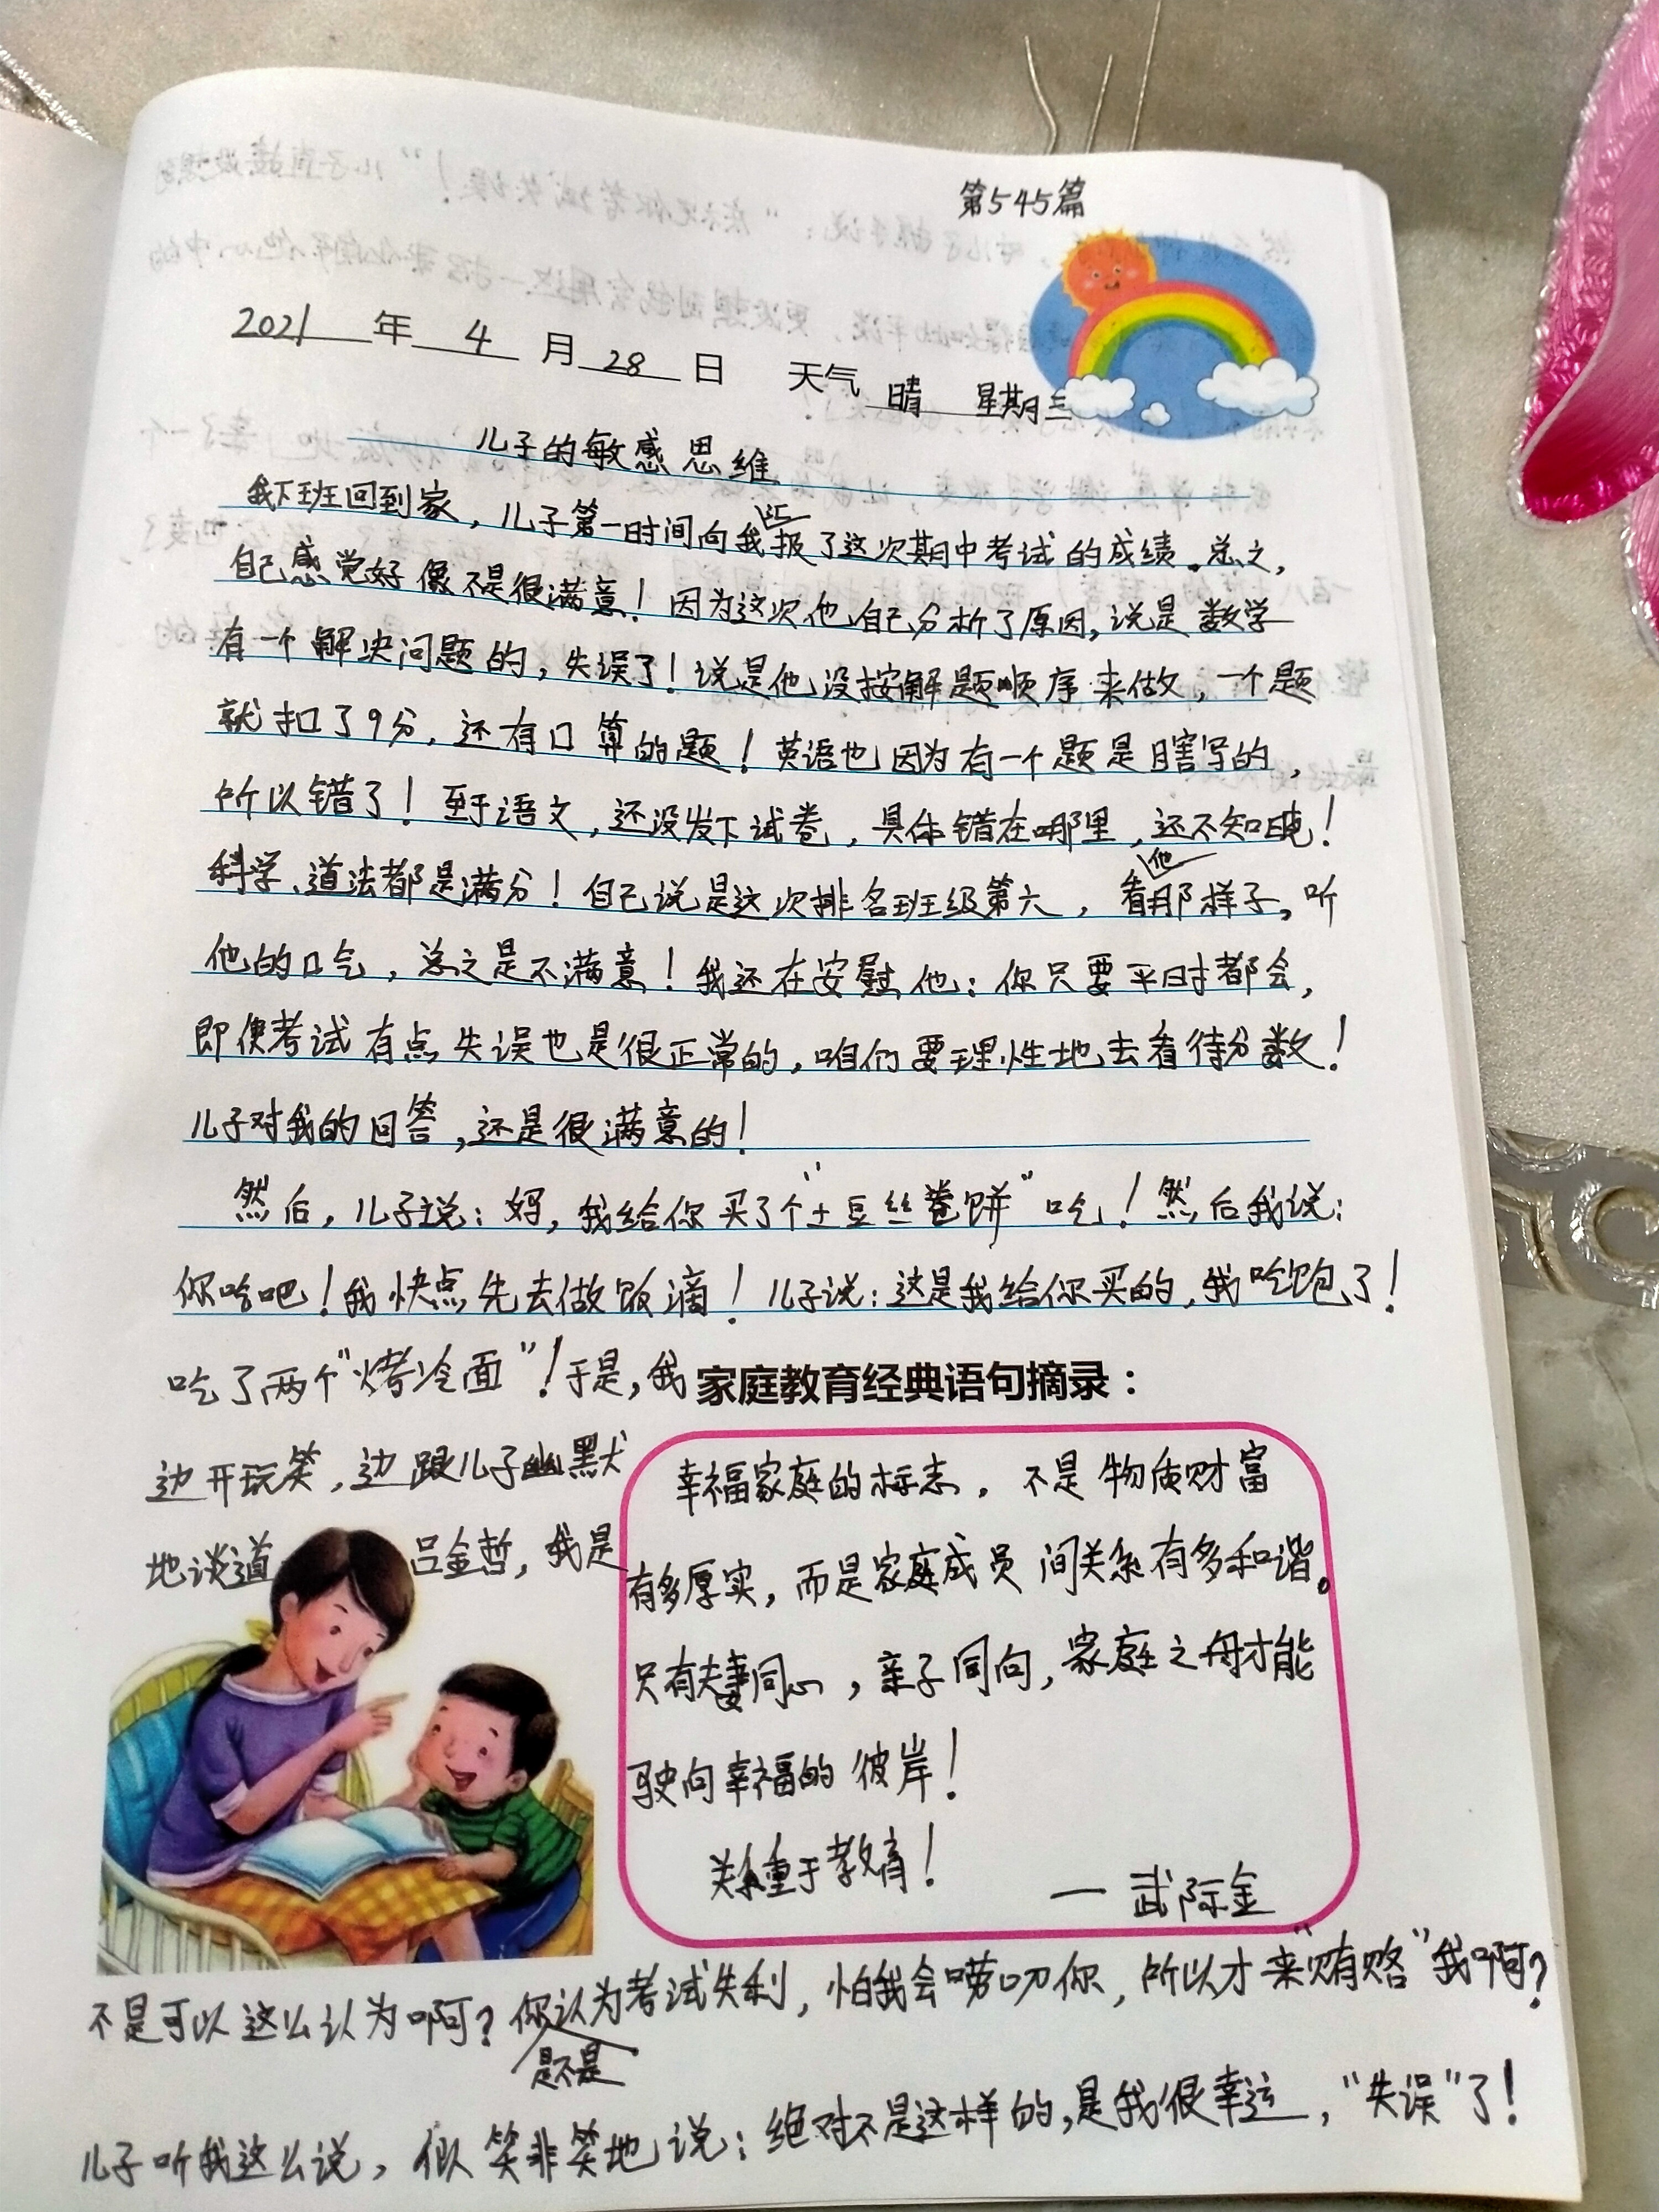 第545篇
2021年4月28日 天气 晴 星期三
儿子的敏感思维
我下班回到家，儿子第一时间向我汇报了这次期中考试的成绩。总之，
自己感觉好像不是很满意！因为这次他自己分析了原因，说是数学
有一个解决问题的，失误了！说是他没按解题顺序来做，一个题
就扣了9分，还有口算的题！英语也因为有一个题是瞎写的，
所以错了！至于语文，还没发下试卷，具体错在哪里，还不知晓！
科学、道法都是满分！自己说是这次排名班级第六，看他那样子，听
他的口气，总之是不满意！我还在安慰他：你只要平时都会，
即使考试有点失误也是很正常的，咱们要理性地去看待分数！
儿子对我的回答，还是很满意的！
然后，儿子说：妈，我给你买了个“土豆丝卷饼”吃！然后我说：
你吃吧！我快点先去做饭滴！儿子说：这是我给你买的，我吃饱了！
吃了两个“烤冷面”！于是，我
边开玩笑，边跟儿子幽默
地谈道 吕金哲，我是
家庭教育经典语句摘录：
幸福家庭的标志，不是物质财富
有多厚实，而是家庭成员间关系有多和谐。
只有夫妻同心，亲子同向，家庭之舟才能
驶向幸福的彼岸！
关系重于教育！
— 武际金
不是可以这么认为啊？你是不是认为考试失利，怕我会唠叨你，所以才来“贿赂”我啊？
儿子听我这么说，似笑非笑地说：绝对不是这样的，是我很幸运，“失误”了！